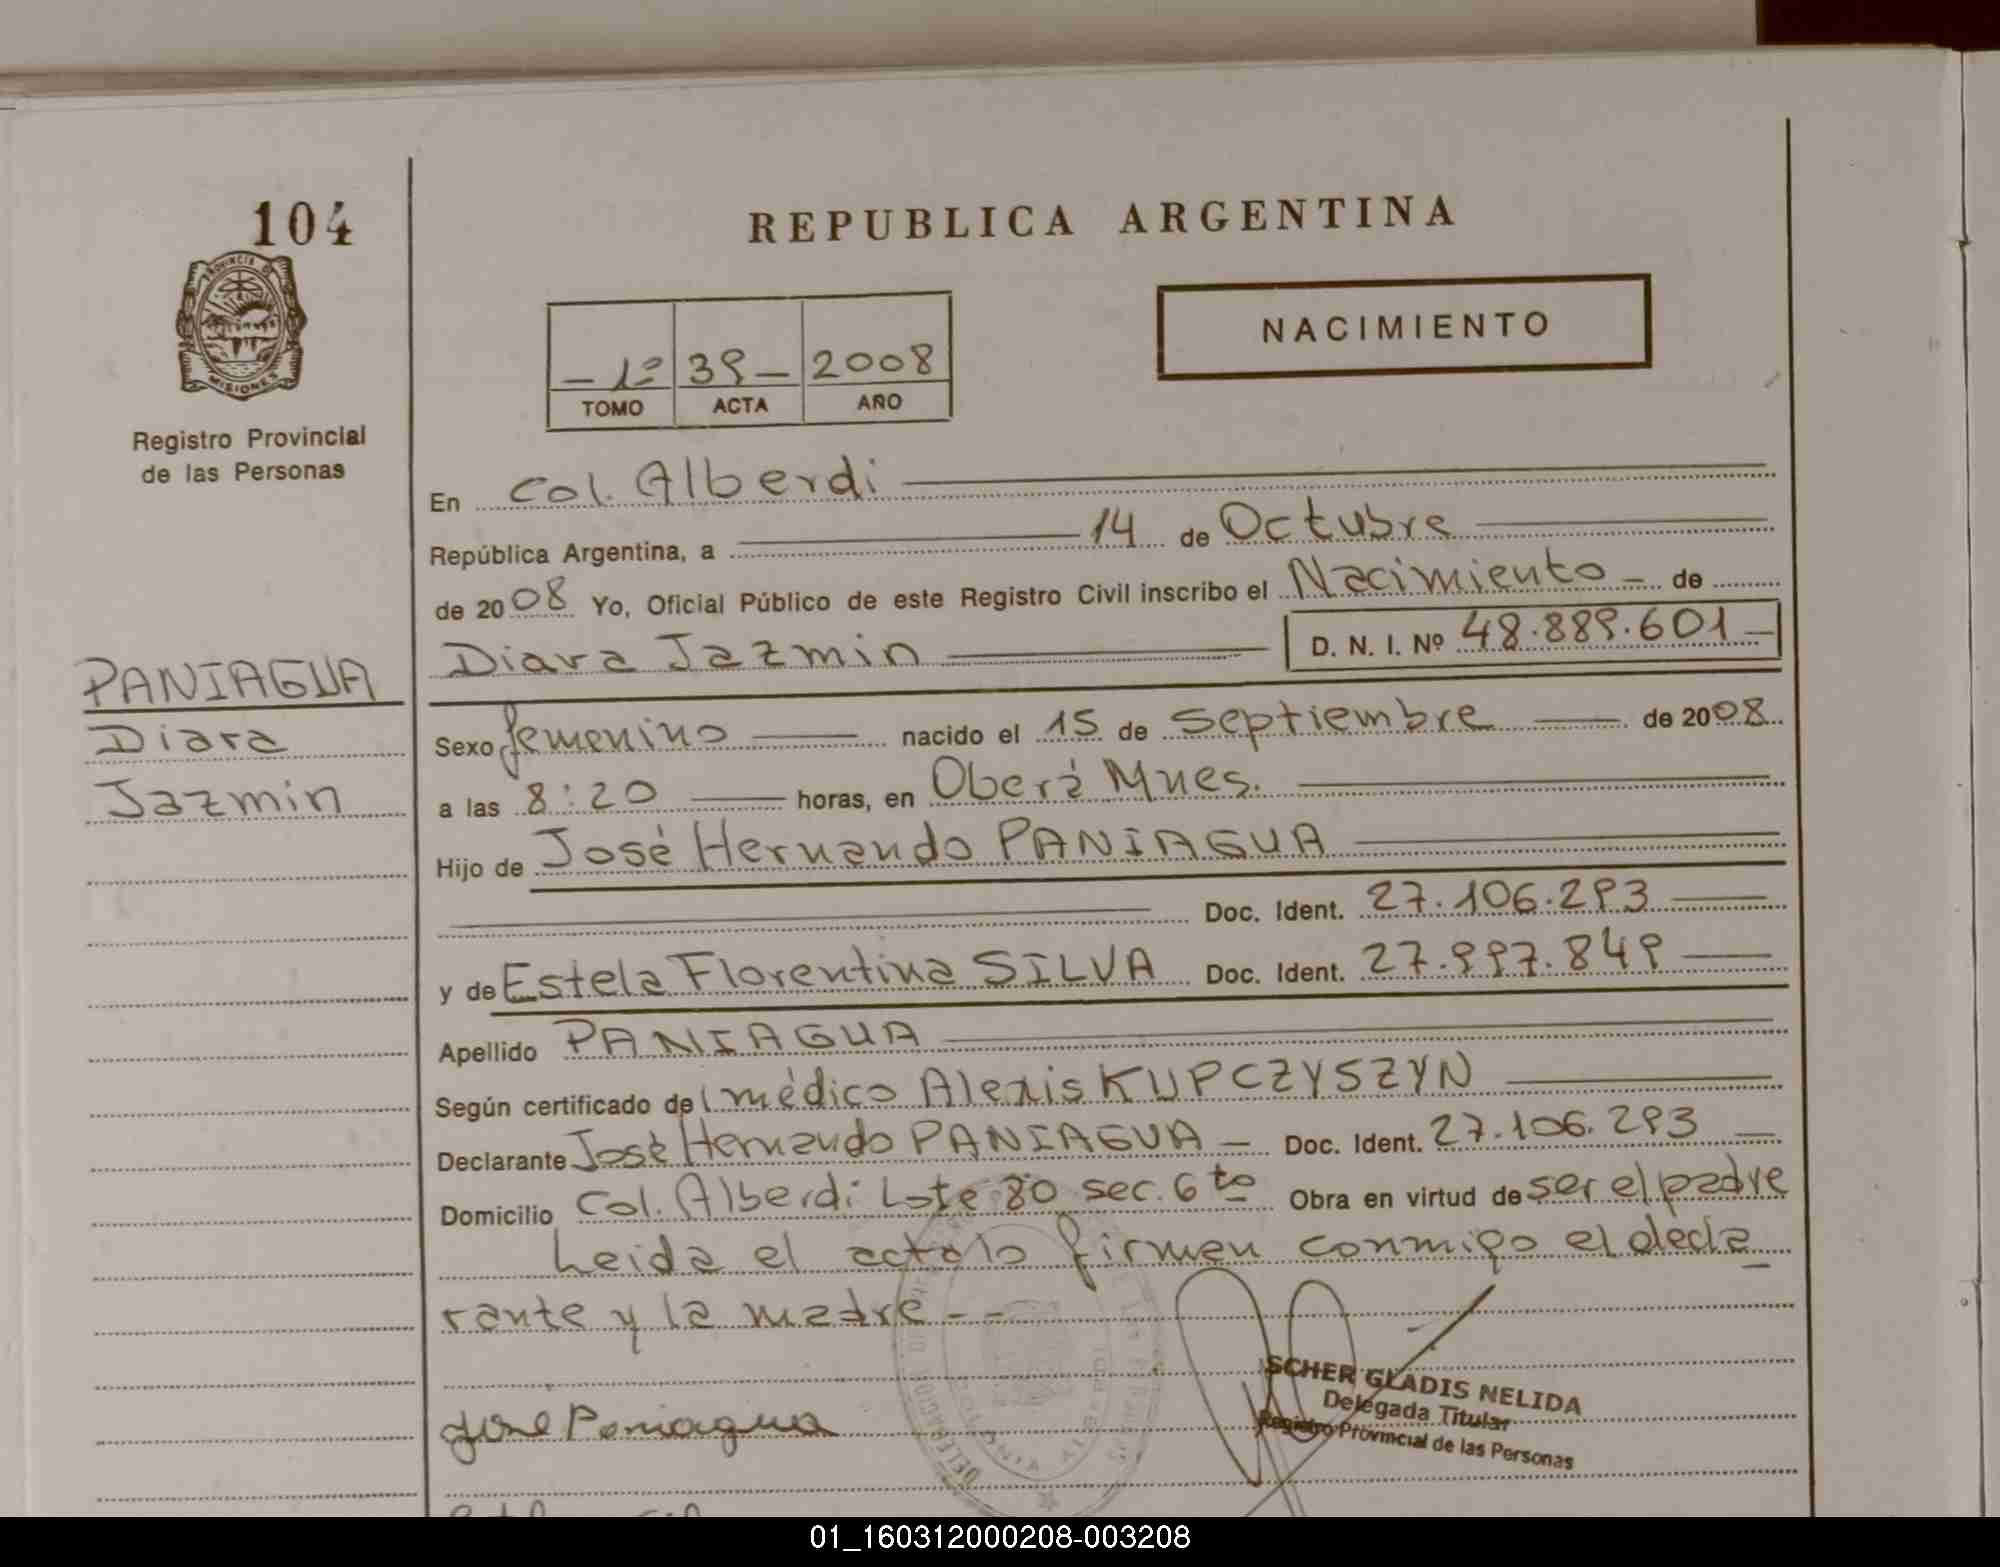 104
PROVINCIA DE
MISIONES
Registro Provincial
de las Personas
PANIAGUA
Diara
Jazmin
REPUBLICA ARGENTINA
NACIMIENTO
- 1º 39 - 2008
TOMO ACTA AÑO
En Col. Alberdi
República Argentina, a 14 de Octubre
de 2008 Yo, Oficial Público de este Registro Civil inscribo el Nacimiento - de
Diara Jazmin D. N. I. Nº 48.889.601
Sexo femenino nacido el 15 de septiembre de 2008
a las 8:20 horas, en Oberá Mnes.
Hijo de José Hernando PANIAGUA
Doc. Ident. 27.106.293
y de Estela Florentina SILVA Doc. Ident. 27.997.849
Apellido PANIAGUA
Según certificado del médico Alexis KUPCZYSZYN
Declarante José Hernando PANIAGUA - Doc. Ident. 27.106.293
Domicilio Col. Alberdi Lote 80 sec. 6to Obra en virtud de ser el padre
Leida el acta lo firman conmigo el decla
rante y la madre - -
José Paniagua
SCHER GLADIS NELIDA
Delegada Titular
Registro Provincial de las Personas
COLONIA ALBERDI
01_160312000208-003208